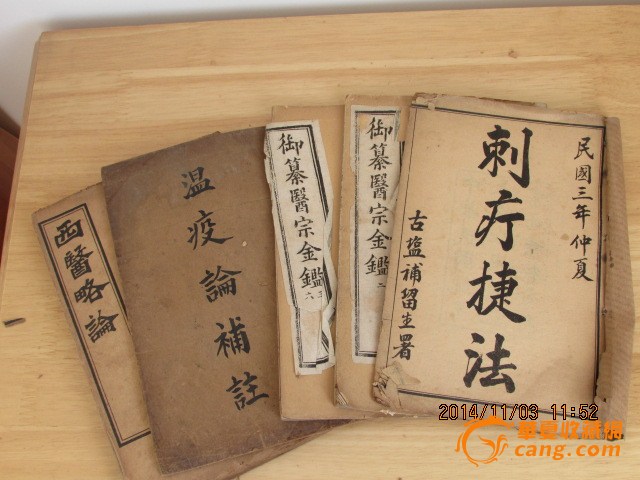 西醫略論
温疫論補註
御纂醫宗金鑑
御纂醫宗金鑑
二
民國三年仲夏
刺疔捷法
古塩補留生署
2014/11/03 11:52
華夏收藏網
cang.com